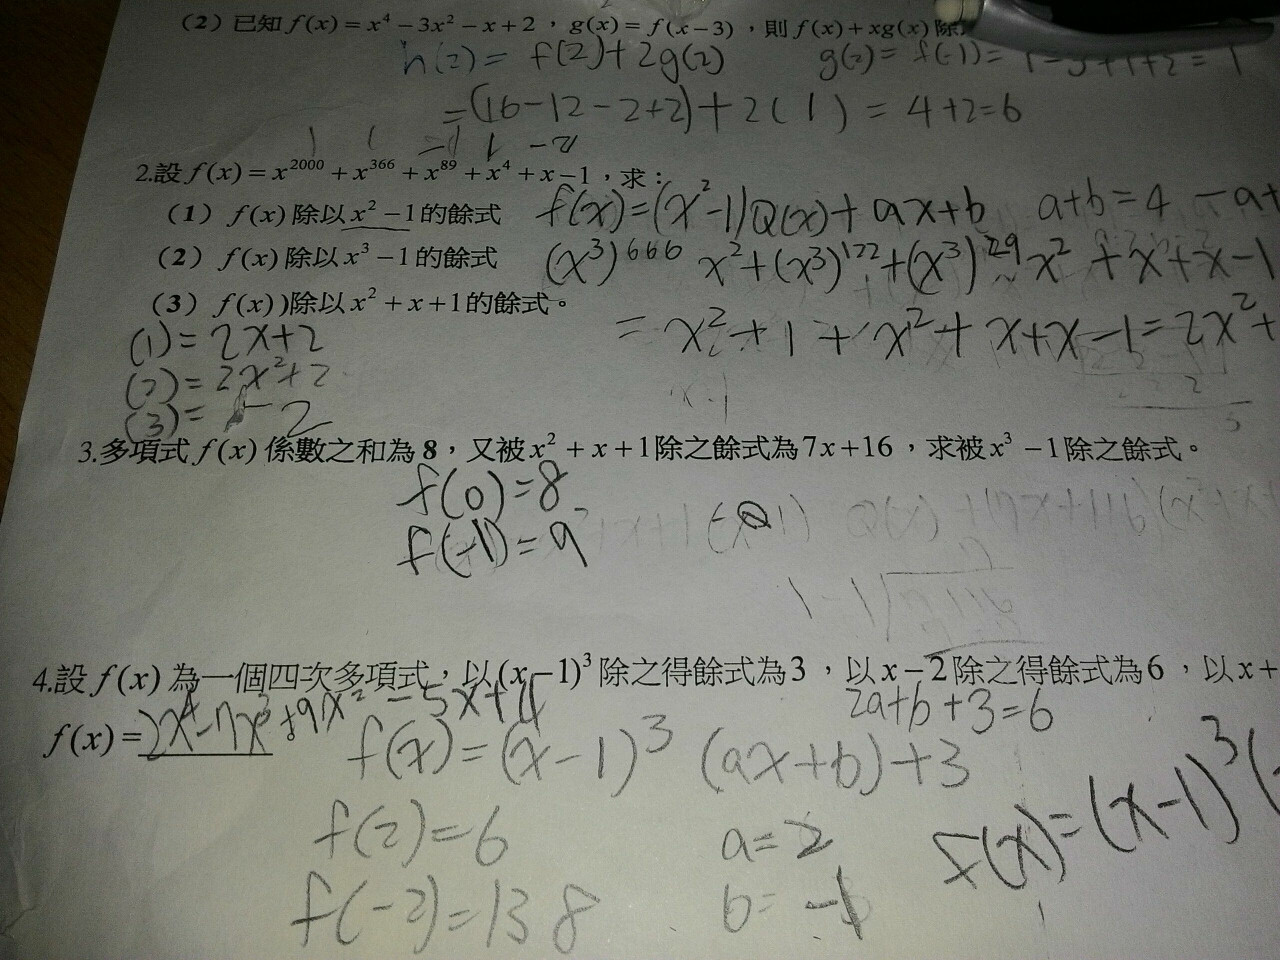 (2) 已知 f(x) = x⁴ − 3x² − x + 2，g(x) = f(x−3)，則 f(x) + xg(x) 除
h(2) = f(2)+2g(2) g(2) = f(-1) = 1-3+1+2 = 1
=(16-12-2+2)+2(1) = 4+2=6
1 1 -1 1 -2
2.設 f(x) = x²⁰⁰⁰ + x³⁶⁶ + x⁸⁹ + x⁴ + x − 1，求：
(1) f(x) 除以 x² − 1 的餘式 f(x)=(x²-1)Q(x)+ax+b a+b=4 -a+
(2) f(x) 除以 x³ − 1 的餘式 (x³)⁶⁶⁶ x²+(x³)¹²²+(x³)²⁹x² +x+x-1
(3) f(x))除以 x² + x + 1 的餘式。
= x²+1+x²+x+x-1=2x²+
(1)=2x+2
(2)=2x²+2
(3)= -2
3.多項式 f(x) 係數之和為 8，又被 x² + x + 1 除之餘式為 7x + 16，求被 x³ − 1 除之餘式。
f(0)=8
f(-1)=9
4.設 f(x) 為一個四次多項式，以 (x − 1)³ 除之得餘式為 3，以 x − 2 除之得餘式為 6，以 x +
2a+b+3=6
f(x) = 2x⁴-7x³+9x²-5x+4
f(x)=(x-1)³(ax+b)+3
f(2)=6 a=2
f(x)=(x-1)³(
f(-2)=138 b= -1